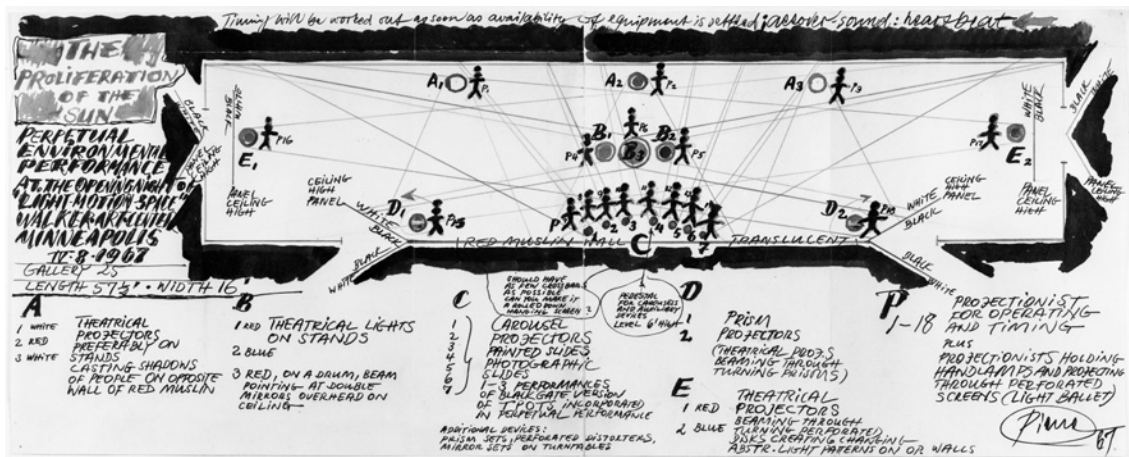 Timing will be worked out as soon as availability of equipment is settled; allover-sound: heartbeat
THE
PROLIFERATION
OF THE
SUN
PERPETUAL
ENVIRONMENTAL
PERFORMANCE
AT THE OPENING NIGHT OF
"LIGHT-MOTION SPACE"
WALKER ART CENTER
MINNEAPOLIS
IV-8-1967
GALLERY 25
LENGTH 57½' · WIDTH 16'
BLACK
WHITE
PANEL
CEILING
HIGH
WHITE
BLACK
E1
P16
PANEL
CEILING
HIGH
CEILING
HIGH
PANEL
WHITE
BLACK
BLACK
WHITE
A1
P1
A2
P2
A3
P3
B1
P6
B2
P4
B3
P5
D1
P15
P
1
2
3
4
5
6
7
D2
RED MUSLIN WALL
C
TRANSLUCENT
P17
E2
WHITE
BLACK
BLACK
WHITE
CEILING
HIGH
PANEL
PANEL
CEILING
HIGH
PANEL
CEILING
HIGH
WHITE
BLACK
BLACK
WHITE
SHOULD HAVE
AS FEW CROSSBARS
AS POSSIBLE
CAN YOU MAKE IT
A ROLLED DOWN
HANGING SCREEN?
PEDESTAL
FOR CAROUSELS
AND AUXILIARY
DEVICES
LEVEL 6' HIGH
A
1 WHITE
2 RED
3 WHITE
THEATRICAL
PROJECTORS
PREFERABLY ON
STANDS
CASTING SHADOWS
OF PEOPLE ON OPPOSITE
WALL OF RED MUSLIN
B
1 RED THEATRICAL LIGHTS
ON STANDS
2 BLUE
3 RED, ON A DRUM, BEAM
POINTING AT DOUBLE
MIRRORS OVERHEAD ON
CEILING
C
1
2
3
4
5
6
7
CAROUSEL
PROJECTORS
PAINTED SLIDES
PHOTOGRAPHIC
SLIDES
1-3 PERFORMANCES
OF BLACK GATE VERSION
OF TPOTS, INCORPORATED
IN PERPETUAL PERFORMANCE
ADDITIONAL DEVICES:
PRISM SETS, PERFORATED DISTORTERS,
MIRROR SETS ON TURNTABLES
D
1
2
PRISM
PROJECTORS
(THEATRICAL PROJS
BEAMING THROUGH
TURNING PRISMS)
E
1 RED
2 BLUE
THEATRICAL
PROJECTORS
BEAMING THROUGH
TURNING PERFORATED
DISKS CREATING CHANGING
ABSTR. LIGHT PATTERNS ON OP. WALLS
P
1-18
PROJECTIONIST
FOR OPERATING
AND TIMING
PLUS
PROJECTIONISTS HOLDING
HANDLAMPS AND PROJECTING
THROUGH PERFORATED
SCREENS (LIGHT BALLET)
Piene
67